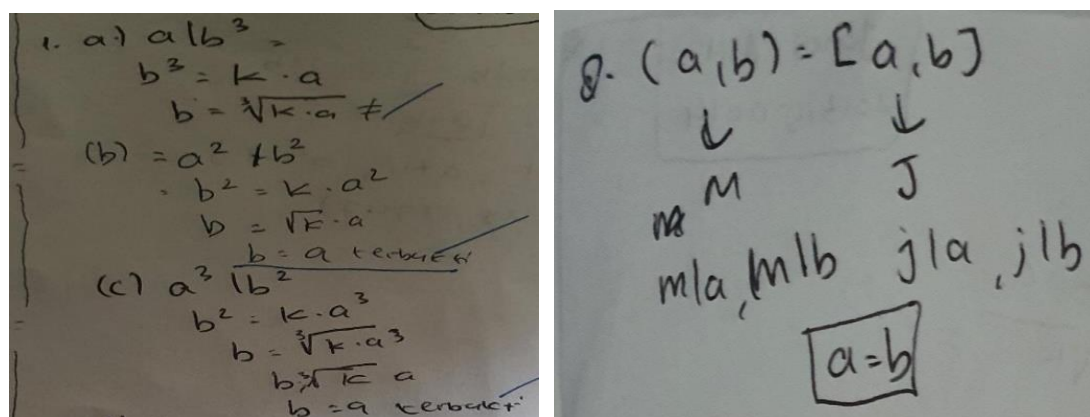 1. a) a|b³ =
b³ = k · a
b = ∛k · a ≠
(b) = a² + b²
b² = k · a²
b = √k · a
b = a terbukti
(c) a³ | b²
b² = k · a³
b = ∛k · a³
b ∛k a
b = a terbukti
8. (a,b) = [a,b]
↓ ↓
M J
m|a, m|b j|a, j|b
a=b